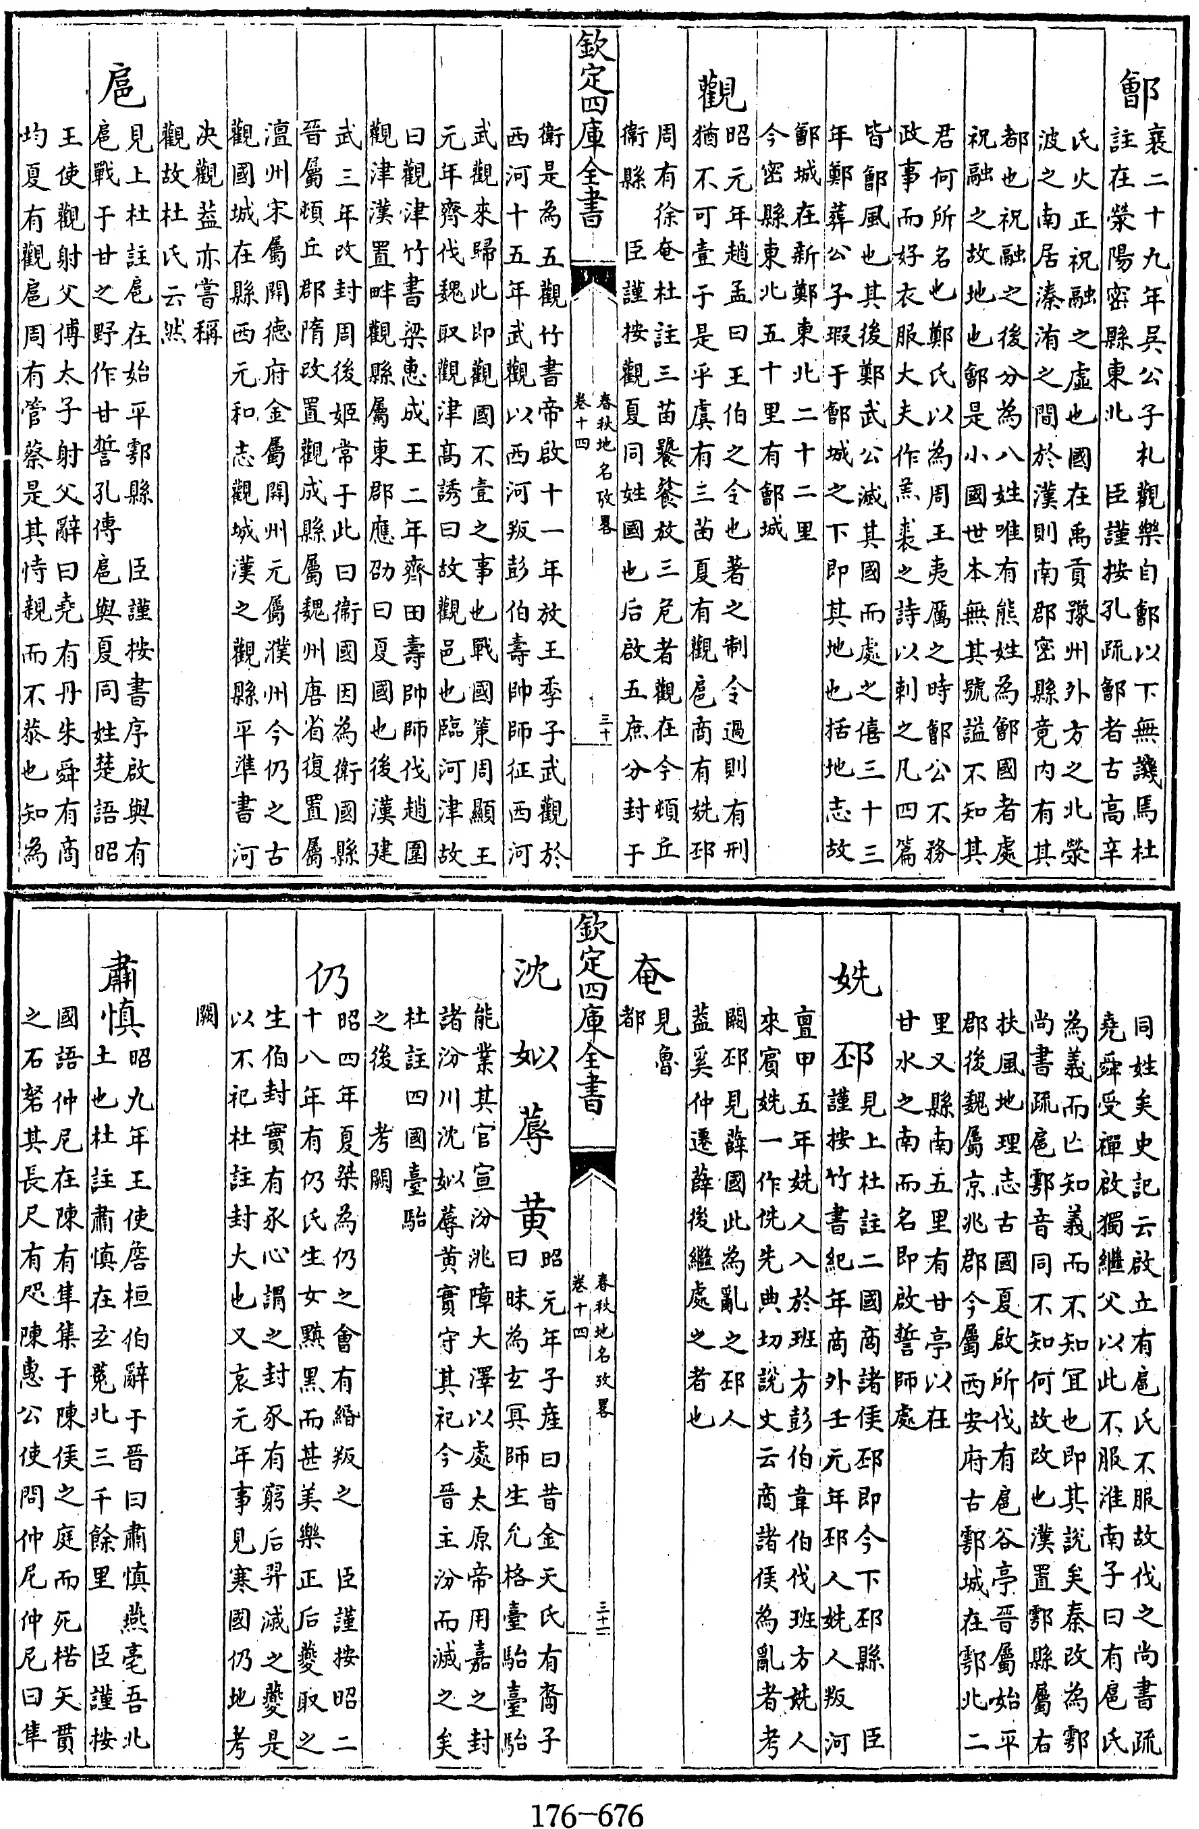 鄶
襄二十九年吳公子札觀樂自鄶以下無譏焉杜
註在滎陽密縣東北　臣謹按孔疏鄶者古高辛
氏火正祝融之虛也國在禹貢豫州外方之北滎
波之南居溱洧之間於漢則南郡密縣竟內有其
都也祝融之後分為八姓唯有熊姓為鄶國者處
祝融之故地也鄶是小國世本無其號謚不知其
君何所名也鄭氏以為周王夷厲之時鄶公不務
政事而好衣服大夫作羔裘之詩以刺之凡四篇
皆鄶風也其後鄭武公滅其國而處之僖三十三
年鄭葬公子瑕于鄶城之下即其地也括地志故
鄶城在新鄭東北二十二里
今密縣東北五十里有鄶城
觀
昭元年趙孟曰王伯之令也著之制令過則有刑
猶不可壹于是乎虞有三苗夏有觀扈商有姺邳
周有徐奄杜註三苗饕餮放三危者觀在今頓丘
衛縣　臣謹按觀夏同姓國也后啟五庶分封于
欽定四庫全書
春秋地名攷畧
卷十四
三十
衛是為五觀竹書帝啟十一年放王季子武觀於
西河十五年武觀以西河叛彭伯壽帥師征西河
武觀來歸此即觀國不壹之事也戰國策周顯王
元年齊伐魏取觀津高誘曰故觀邑也臨河津故
曰觀津竹書梁惠成王二年齊田壽帥師伐趙圍
觀津漢置畔觀縣屬東郡應劭曰夏國也後漢建
武三年改封周後姬常于此曰衛國因為衛國縣
晉屬頓丘郡隋改置觀成縣屬魏州唐省復置屬
澶州宋屬開德府金屬開州元屬濮州今仍之古
觀國城在縣西元和志觀城漢之觀縣平準書河
决觀葢亦嘗稱
觀故杜氏云然
扈
見上杜註扈在始平鄠縣　臣謹按書序啟與有
扈戰于甘之野作甘誓孔傳扈與夏同姓楚語昭
王使觀射父傅太子射父辭曰堯有丹朱舜有商
均夏有觀扈周有管蔡是其恃親而不恭也知為
同姓矣史記云啟立有扈氏不服故伐之尚書疏
堯舜受禪啟獨繼父以此不服淮南子曰有扈氏
為義而亡知義而不知宜也即其說矣秦改為鄠
尚書疏扈鄠音同不知何故改也漢置鄠縣屬右
扶風地理志古國夏啟所伐有扈谷亭晉屬始平
郡後魏屬京兆郡今屬西安府古鄠城在鄠北二
里又縣南五里有甘亭以在
甘水之南而名即啟誓師處
姺　邳
見上杜註二國商諸侯邳即今下邳縣　臣
謹按竹書紀年商外壬元年邳人姺人叛河
亶甲五年姺人入於班方彭伯韋伯伐班方姺人
來賓姺一作侁先典切說文云商諸侯為亂者考
闕邳見薛國此為亂之邳人
葢奚仲遷薛後繼處之者也
奄
見魯
都
欽定四庫全書
春秋地名攷畧
卷十四
三十一
沈　姒　蓐　黄
昭元年子産曰昔金天氏有裔子
曰昧為玄冥師生允格臺駘臺駘
能業其官宣汾洮障大澤以處太原帝用嘉之封
諸汾川沈姒蓐黄實守其祀今晉主汾而滅之矣
杜註四國臺駘
之後　考闕
仍
昭四年夏桀為仍之會有緡叛之　臣謹按昭二
十八年有仍氏生女黰黑而甚美樂正后夔取之
生伯封實有豕心謂之封豕有窮后羿滅之夔是
以不祀杜註封大也又哀元年事見寒國仍地考
闕
肅慎
昭九年王使詹桓伯辭于晉曰肅慎燕亳吾北
土也杜註肅慎在玄菟北三千餘里　臣謹按
國語仲尼在陳有隼集于陳侯之庭而死楛矢貫
之石砮其長尺有咫陳惠公使問仲尼仲尼曰隼
176-676